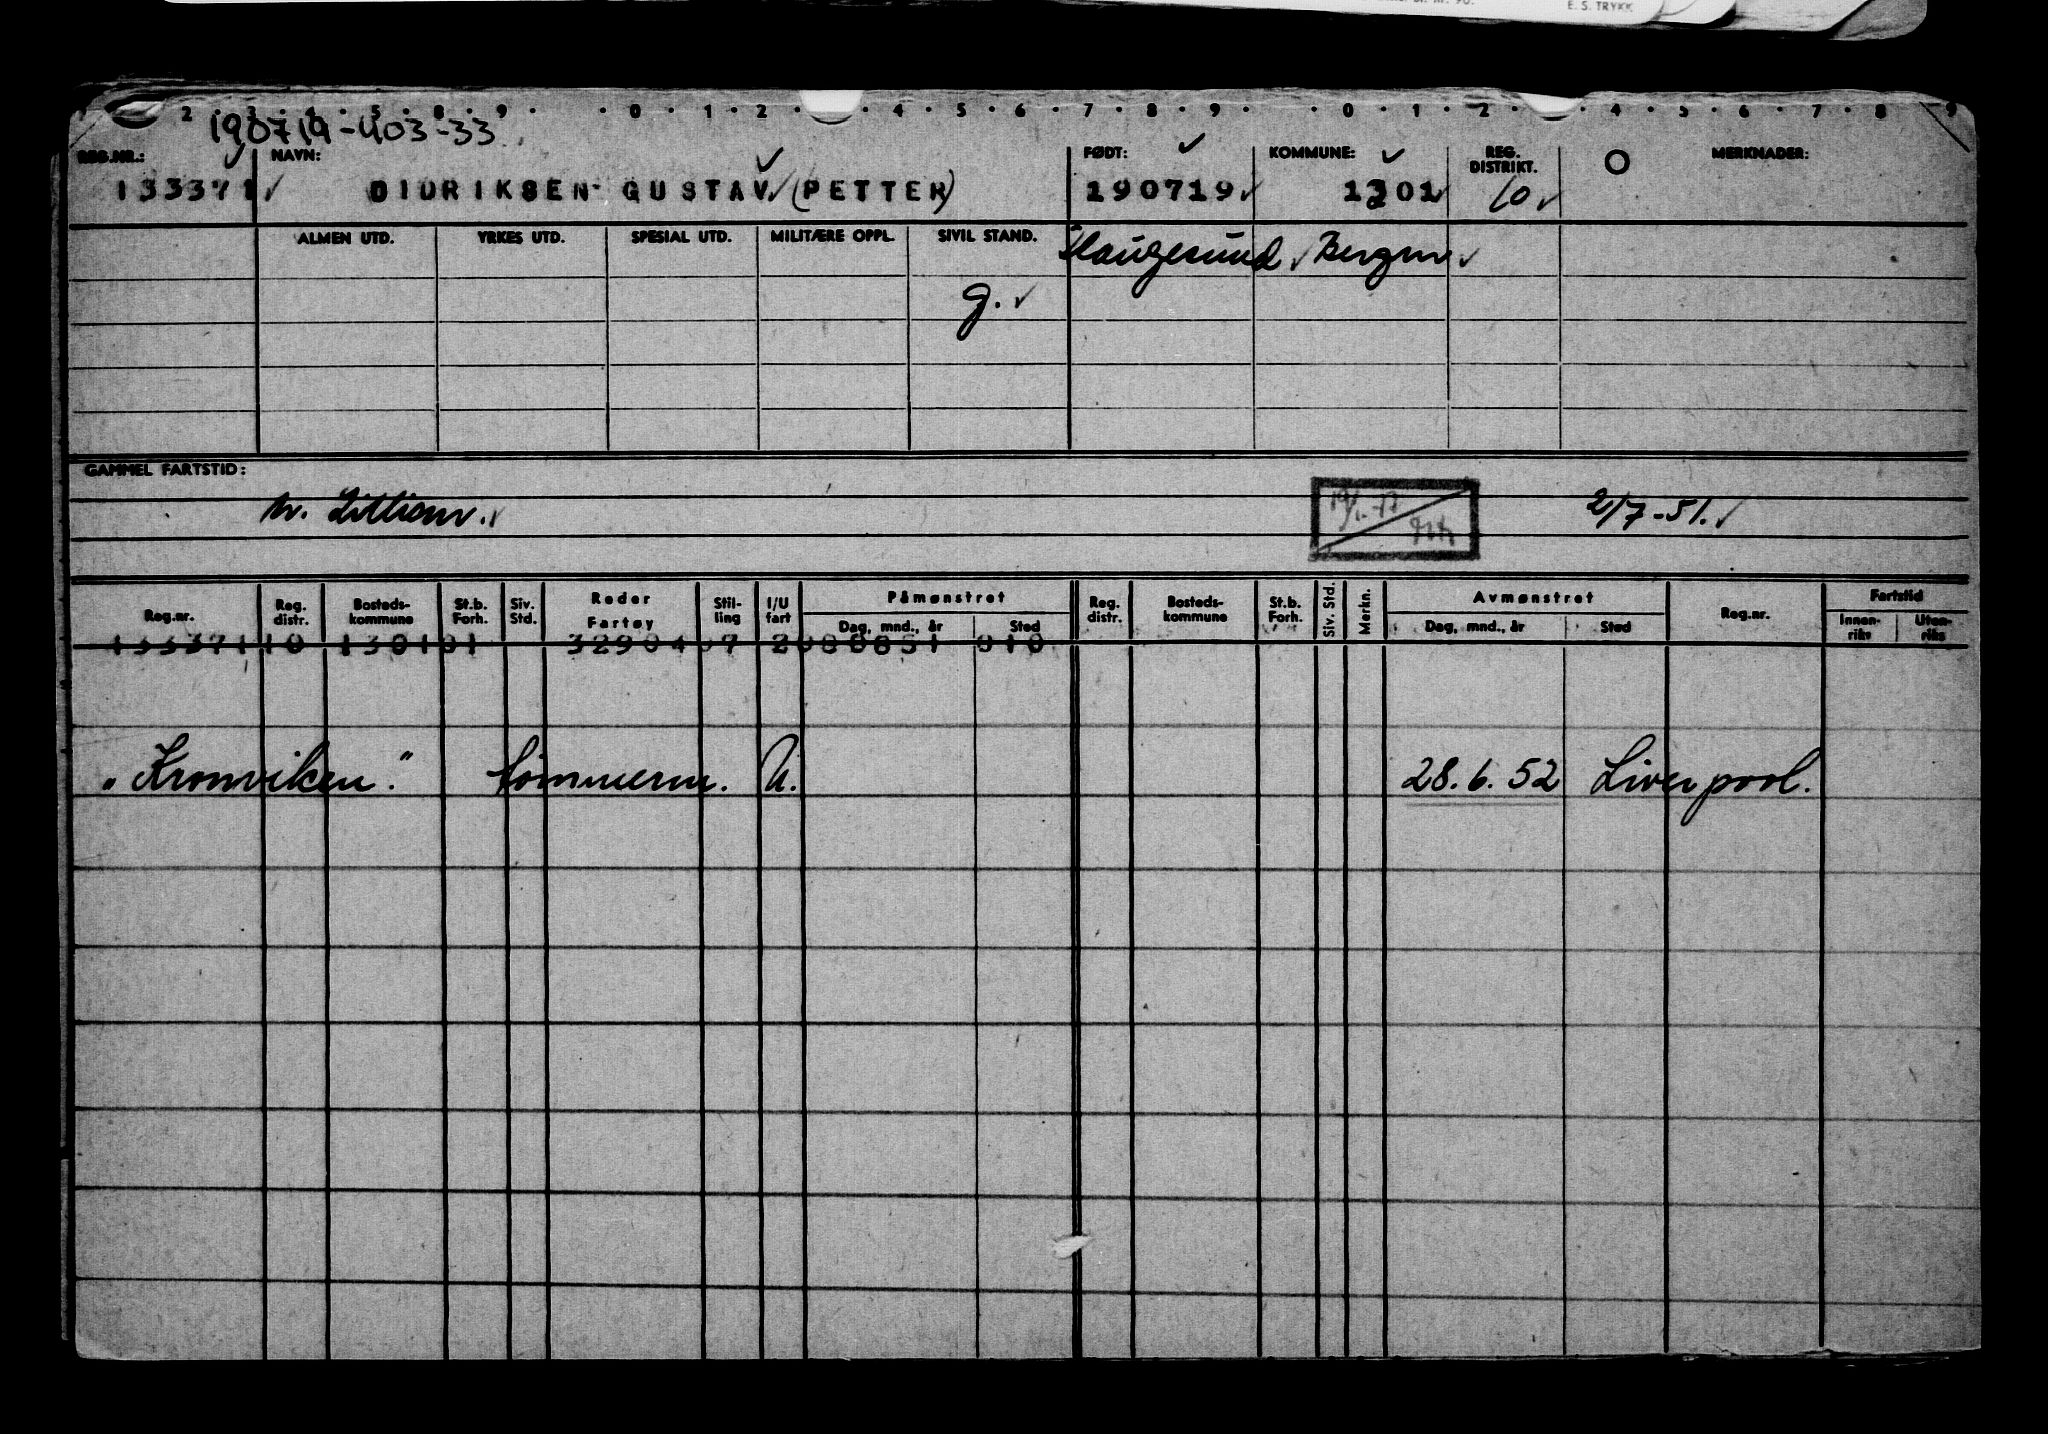 E. S. TRYKK
2 3 4 5 8 9 0 1 2 4 5 6 7 8 9 0 1 2 4 5 6 7 8 9
190719-403-33
REG.NR.: NAVN: FØDT: KOMMUNE: REG. DISTRIKT. MERKNADER:
133371 DIDRIKSEN GUSTAV (PETTER) 190719 1301 10
ALMEN UTD. YRKES UTD. SPESIAL UTD. MILITÆRE OPPL. SIVIL STAND. Haugesund Bergen
g.
GAMMEL FARTSTID:
2/7-51.
Reg.nr. Reg. distr. Bosteds-kommune St.b. Forh. Siv. Std. Reder Fartøy Stil-ling I/U fart Påmønstret Dag, mnd., år Sted Reg. distr. Bosteds-kommune St.b. Forh. Siv. Std. Merkn. Avmønstret Dag, mnd., år Sted Reg.nr. Fartstid Innen-riks Uten-riks
133371 10 1301 01 32904 07 2 080851 910
"Kronviken." tømmerm. U. 28.6.52 Liverpool.